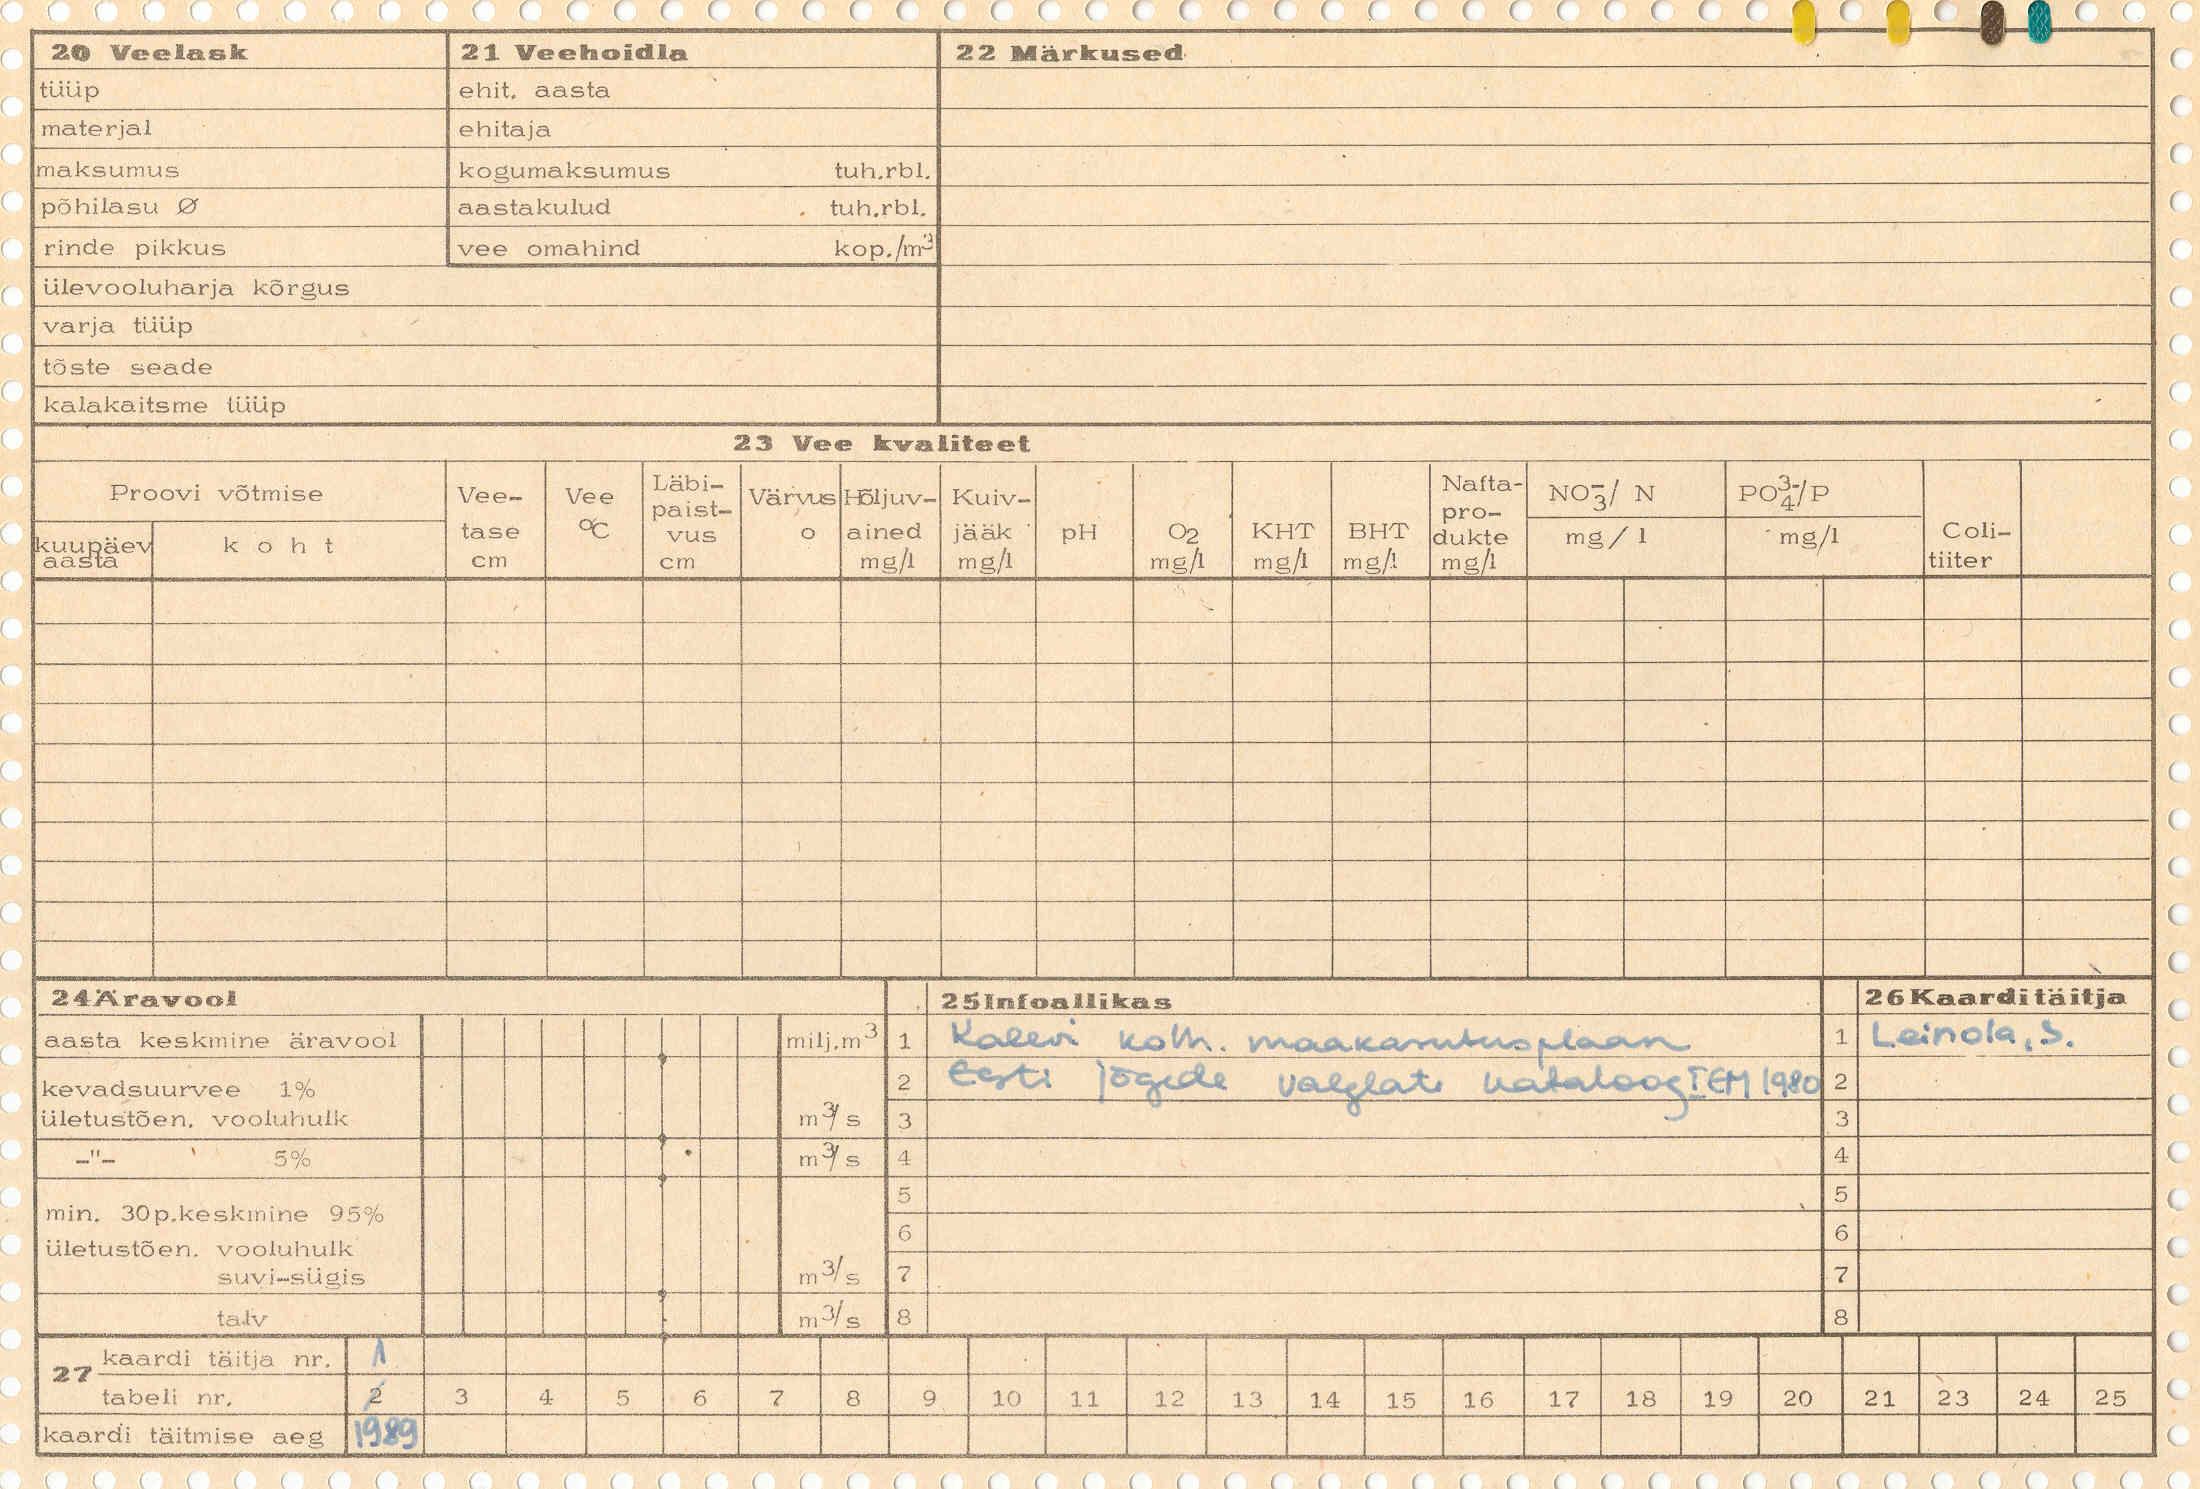 20 Veelask
tüüp
materjal
maksumus
põhilasu Ø
rinde pikkus
ülevooluharja kõrgus
varja tüüp
tõste seade
kalakaitsme tüüp
21 Veehoidla
ehit. aasta
ehitaja
kogumaksumus tuh.rbl.
aastakulud tuh.rbl.
vee omahind kop./m³
22 Märkused
23 Vee kvaliteet
Proovi võtmise
kuupäev
aasta
koht
Vee-
tase
cm
Vee
°C
Läbi-
paist-
vus
cm
Värvus
o
Hõljuv-
ained
mg/l
Kuiv-
jääk
mg/l
pH
O2
mg/l
KHT
mg/l
BHT
mg/l
Nafta-
pro-
dukte
mg/l
NO₃⁻/ N
mg/l
PO₄³⁻/P
mg/l
Coli-
tiiter
24 Äravool
aasta keskmine äravool milj.m³
kevadsuurvee 1%
ületustõen. vooluhulk m³/s
-"- 5% m³/s
min. 30p.keskmine 95%
ületustõen. vooluhulk
suvi-sügis m³/s
talv m³/s
25 Infoallikas
1 Kalevi kolh. maakasutusplaan
2 Eesti jõgede valglate kataloog I EM 1980
3
4
5
6
7
8
26 Kaardi täitja
1 Leinola, S.
2
3
4
5
6
7
8
27
kaardi täitja nr. 1
tabeli nr. 2 3 4 5 6 7 8 9 10 11 12 13 14 15 16 17 18 19 20 21 23 24 25
kaardi täitmise aeg 1989